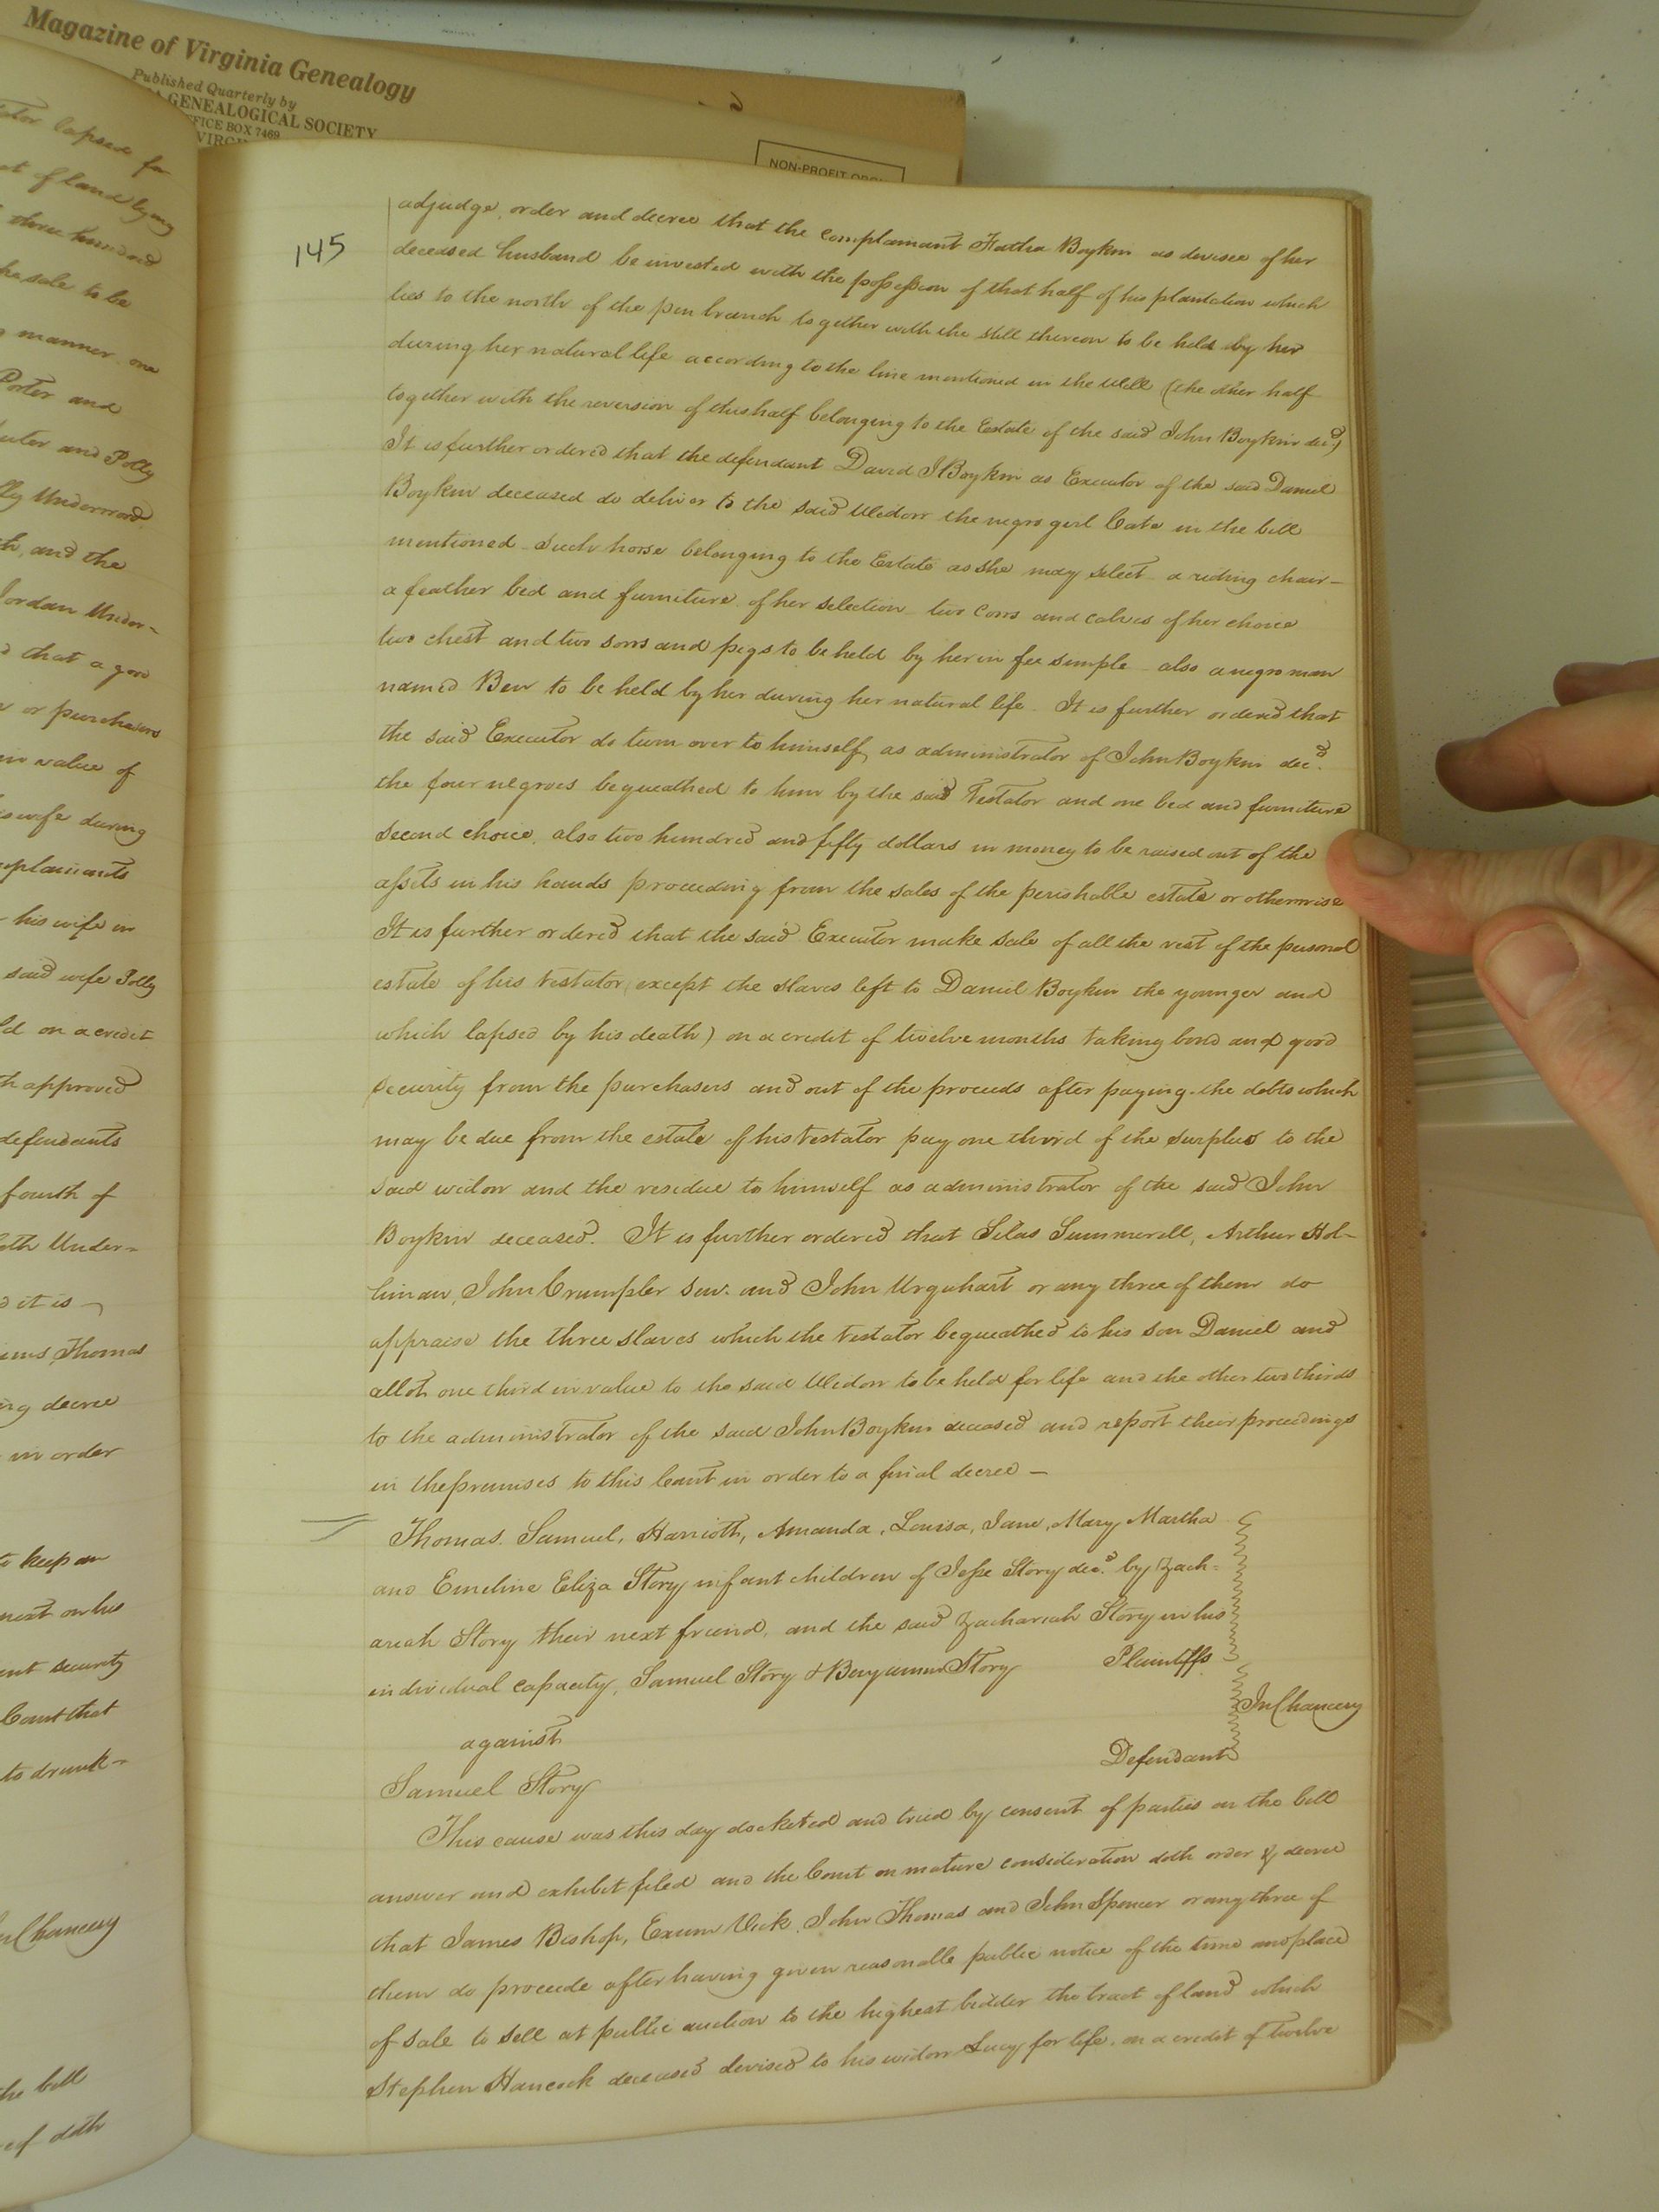 Magazine of Virginia Genealogy
Published Quarterly by
GENEALOGICAL SOCIETY
OFFICE BOX 7469
NON-PROFIT ORG
lapsed for
of land lying
three hundred
he sale to be
manner one
Porter and
and Polly
Underwood
and the
Jordan Under-
that a good
or purchasers
value of
wife during
complainants
his wife in
said wife Polly
on a credit
approved
defendants
fourth of
Under-
it is
Thomas
decree
in order
to keep an
next on his
security
Court that
to drunk-
In Chancery
the bill
doth
145
adjudge, order and decree that the complainant Fatha Boykin as devisee of her
deceased husband be invested with the possession of that half of his plantation which
lies to the north of the pen branch together with the still thereon to be held by her
during her natural life according to the line mentioned in the Will (the other half
together with the reversion of this half belonging to the Estate of the said John Boykin decd)
It is further ordered that the defendant David J Boykin as Executor of the said Daniel
Boykin deceased do deliver to the said Widow the negro girl Cate in the bill
mentioned - such horse belonging to the Estate as she may select - a riding chair -
a feather bed and furniture of her selection - two cows and calves of her choice
two chest and two sows and pigs to be held by her in fee simple - also a negro man
named Ben to be held by her during her natural life. It is further ordered that
the said Executor do turn over to himself, as administrator of John Boykin decd.
the four negroes bequeathed to him by the said Testator and one bed and furniture
second choice, also two hundred and fifty dollars in money to be raised out of the
assets in his hands proceeding from the sales of the perishable estate or otherwise
It is further ordered that the said Executor make sale of all the rest of the personal
estate of his testator (except the slaves left to Daniel Boykin the younger and
which lapsed by his death) on a credit of twelve months taking bond and good
security from the purchasers and out of the proceeds after paying the debts which
may be due from the estate of his testator pay one third of the surplus to the
said widow and the residue to himself as administrator of the said John
Boykin deceased. It is further ordered that Silas Summerell, Arthur Hol-
liman, John Crumpler Senr. and John Urquhart or any three of them do
appraise the three slaves which the testator bequeathed to his son Daniel and
allot one third in value to the said Widow to be held for life and the other two thirds
to the administrator of the said John Boykin deceased and report their proceedings
in the premises to this Court in order to a final decree -
Thomas, Samuel, Harrioth, Amanda, Louisa, Jane, Mary, Martha
and Emeline Eliza Story infant children of Jesse Story decd. by Zach-
ariah Story their next friend, and the said Zachariah Story in his
individual capacity, Samuel Story & Benjamin Story Plaintiffs
In Chancery
against
Samuel Story Defendant
This cause was this day docketed and tried by consent of parties on the bill
answer and exhibit filed and the Court on mature consideration doth order & decree
that James Bishop, Exum Vick, John Thomas and John Spencer or any three of
them do proceede after having given reasonable public notice of the time and place
of sale to sell at public auction to the highest bidder the tract of land which
Stephen Hancock deceased devised to his widow Lucy for life, on a credit of twelve